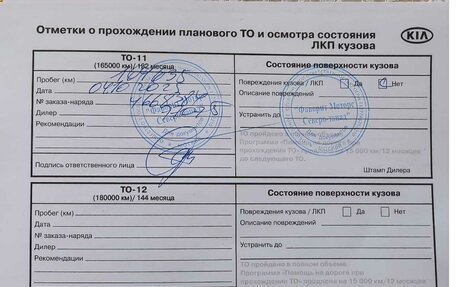 Отметки о прохождении планового ТО и осмотра состояния
ЛКП кузова
KIA
ТО-11
(165000 км)/ 132 месяца
Состояние поверхности кузова
Пробег (км)
Повреждения кузова / ЛКП Да Нет
Дата
Описание повреждений
№ заказа-наряда
Дилер
Устранить до
Рекомендации
"Фаворит Моторс
Северо-запад"
ТО пройдено в полном объеме.
Программа «Помощь на дороге при
прохождении ТО» продлена на 15 000 км/12 месяцев
до следующего ТО.
Подпись ответственного лица
Штамп Дилера
ТО-12
(180000 км)/ 144 месяца
Состояние поверхности кузова
Пробег (км)
Повреждения кузова / ЛКП Да Нет
Дата
Описание повреждений
№ заказа-наряда
Дилер
Устранить до
Рекомендации
ТО пройдено в полном объеме.
Программа «Помощь на дороге при
прохождении ТО» продлена на 15 000 км/12 месяцев